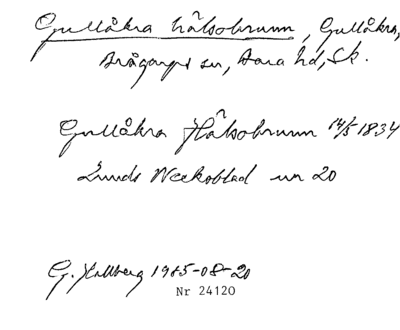 Gullåkra hälsobrunn, Gullåkra,
Brågarps sn, Bara hd, Sk.
Gullåkra Hälsobrunn 14/5 1834
Lunds Weckoblad nr 20
G. Hallberg 1985-08-20
Nr 24120